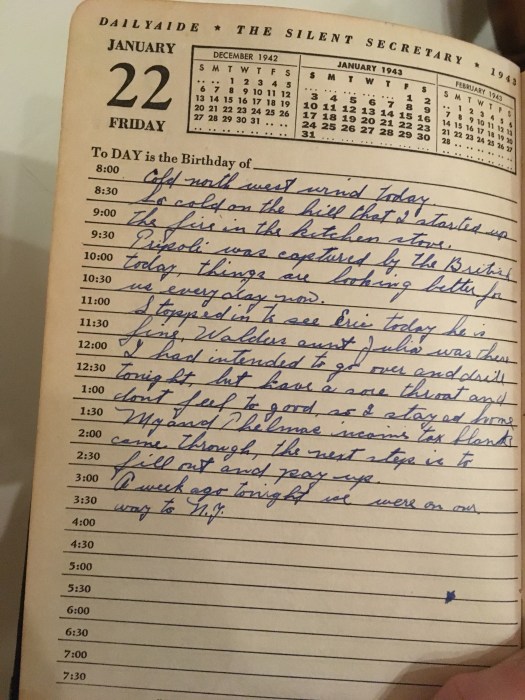 DAILYAIDE ★ THE SILENT SECRETARY ★ 1943
JANUARY
22
FRIDAY
DECEMBER 1942
S M T W T F S
.. .. 1 2 3 4 5
6 7 8 9 10 11 12
13 14 15 16 17 18 19
20 21 22 23 24 25 26
27 28 29 30 31 .. ..
JANUARY 1943
S M T W T F S
.. .. .. .. .. 1 2
3 4 5 6 7 8 9
10 11 12 13 14 15 16
17 18 19 20 21 22 23
24 25 26 27 28 29 30
31 .. .. .. .. .. ..
FEBRUARY 1943
S M T W T F S
.. 1 2 3 4 5 6
7 8 9 10 11 12 13
14 15 16 17 18 19 20
21 22 23 24 25 26 27
28 .. .. .. .. .. ..
To DAY is the Birthday of
8:00 Cold north west wind today.
8:30 So cold on the hill that I started up
9:00 the fire in the kitchen stove.
9:30 Pripoli was captured by the British
10:00 today, things are looking better for
10:30 us every day now.
11:00 Stopped in to see Eric today he is
11:30 fine, Walders aunt Julia was there
12:00 I had intended to go over and drill
12:30 tonight, but have a sore throat and
1:00 dont feel to good, so I stayed home
1:30 My and Thelmas income tax blanks
2:00 came through, the next step is to
2:30 fill out and pay up.
3:00 A week ago tonight we were on our
3:30 way to N.Y.
4:00
4:30
5:00
5:30
6:00
6:30
7:00
7:30